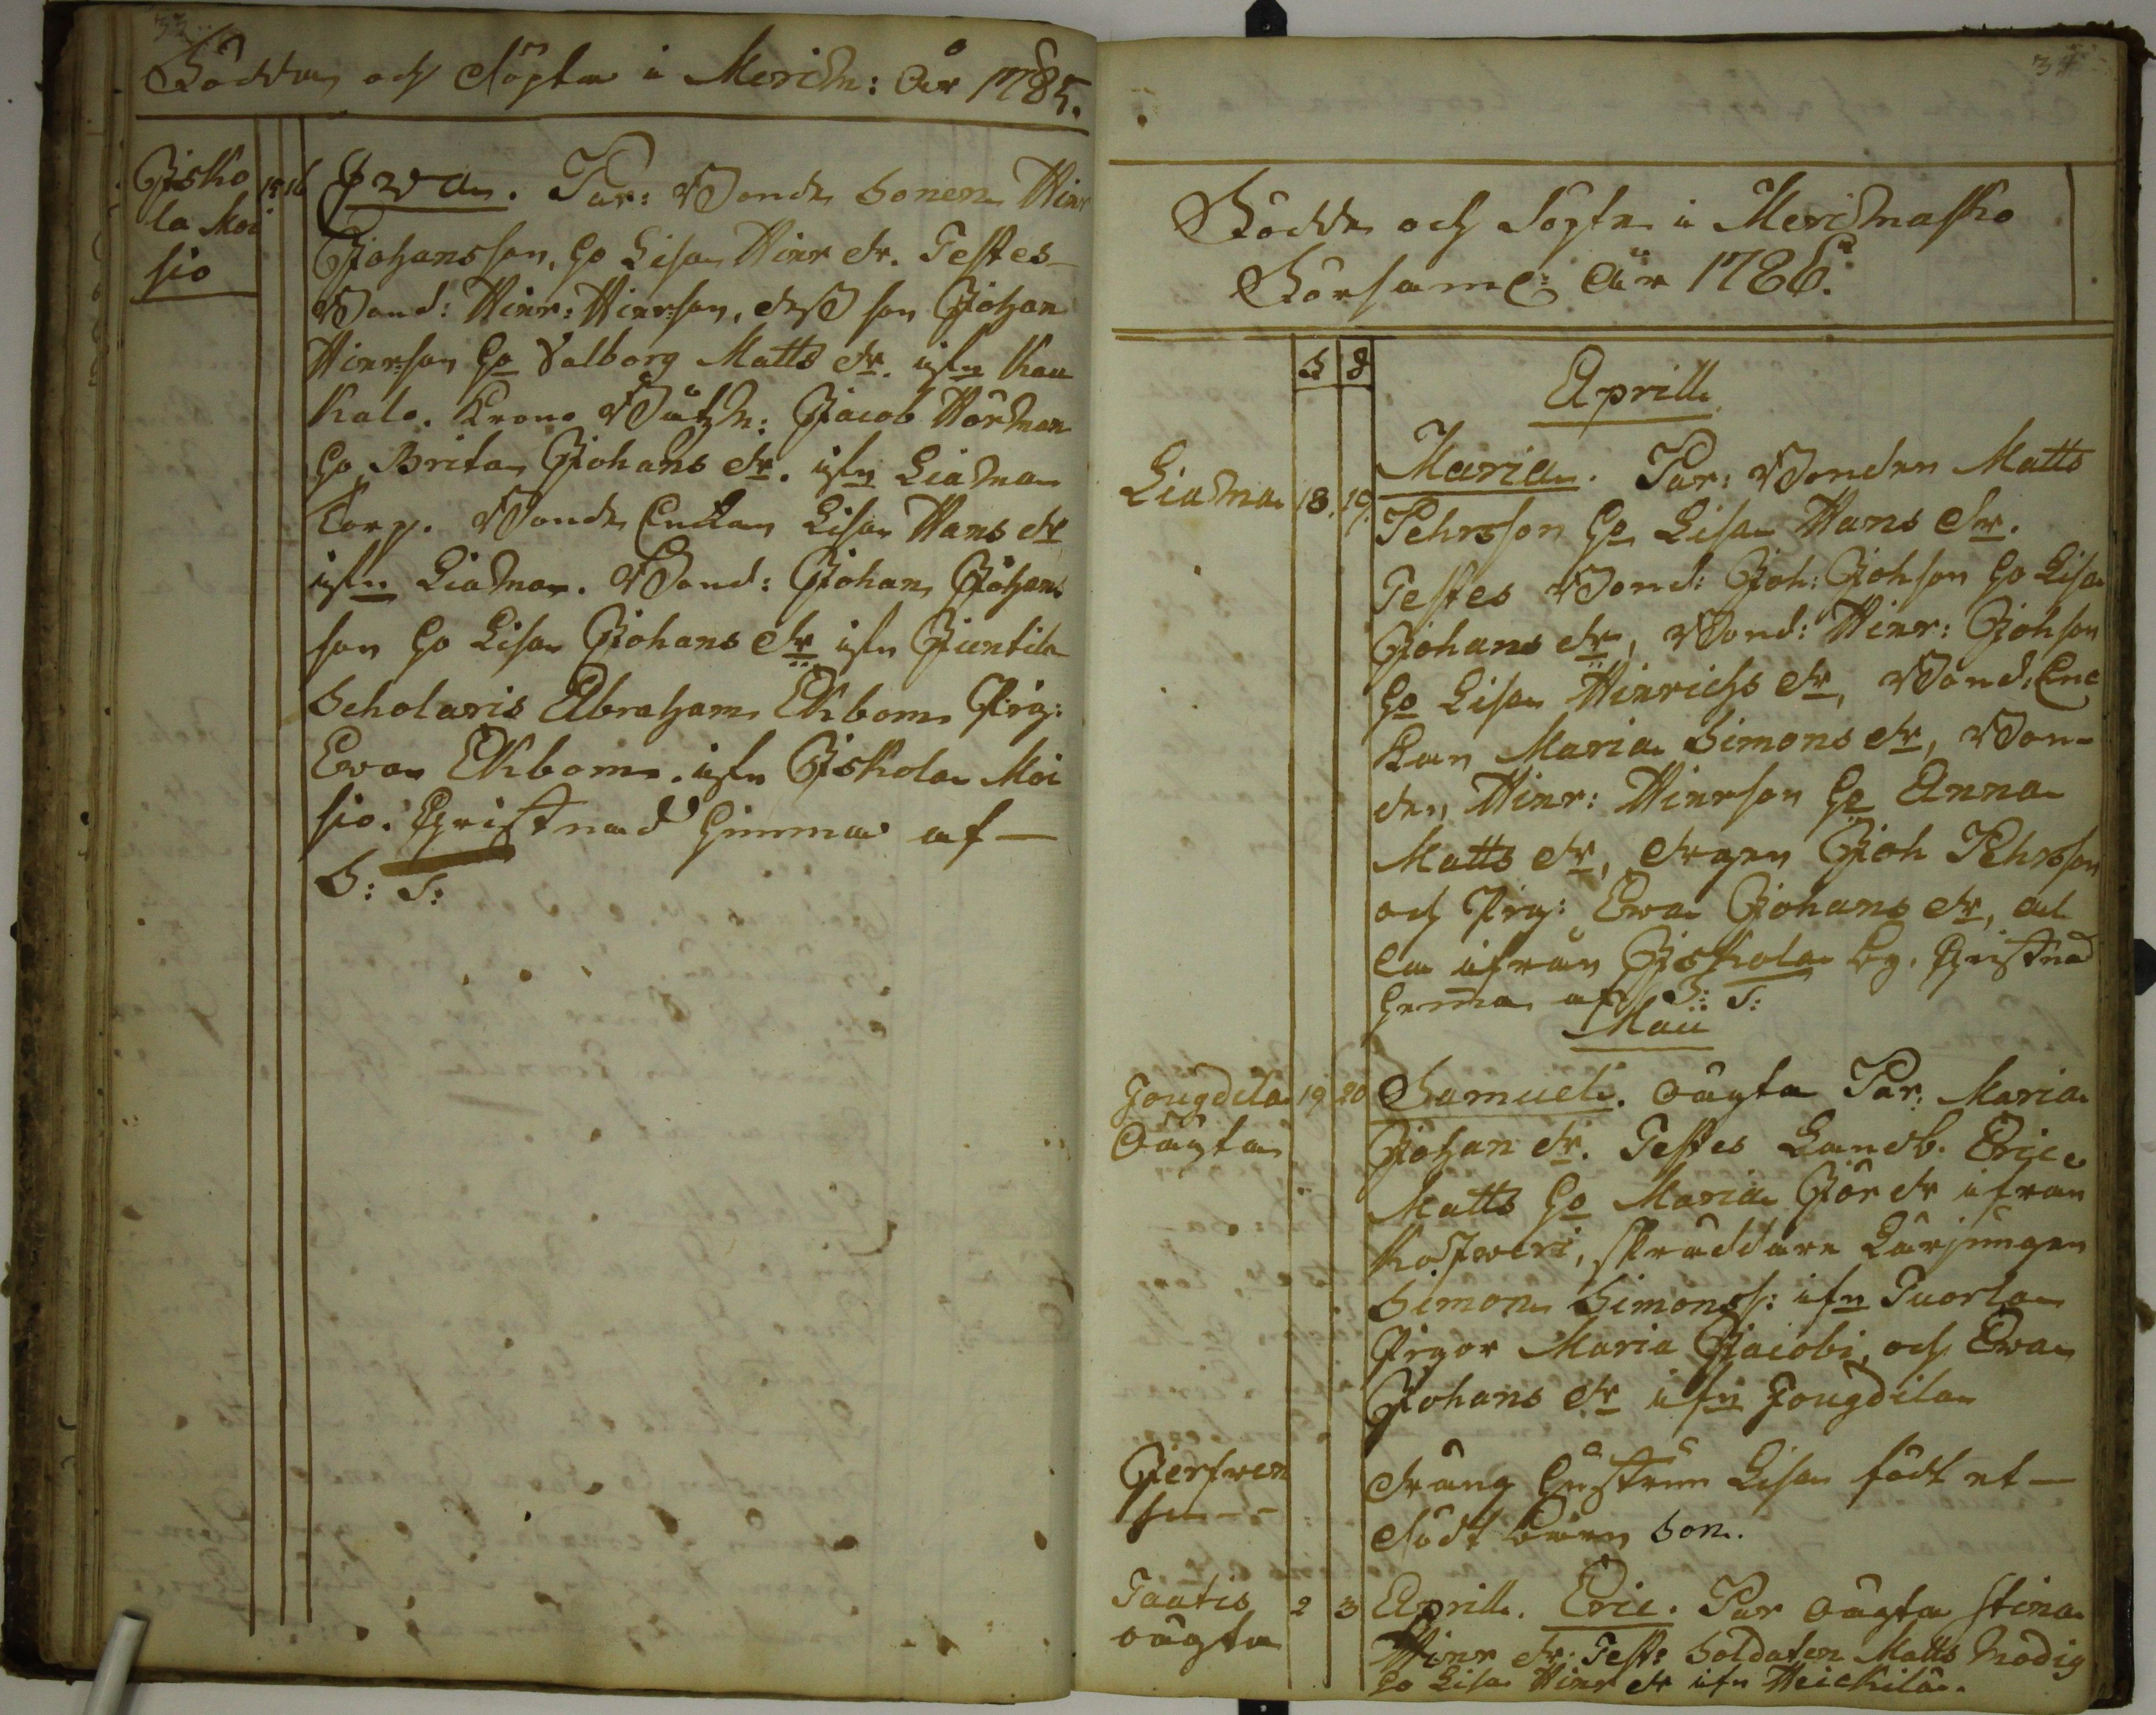 33
Födda och döpta i Merichn: År 1785.
Isko
la Moi
sio
15 16
Ewa. Par: Bonde Sonen Hinr
Johansson, Ho Lisa Hinr dr. Testes
Bond: Hinr: Hinrson, dess son Johan
Hinrson Ho Valborg Matts dr. ifrn Kau
kala. Krono Båtzm: Jacob Hörman
Ho Brita Johans dr. ifrn Liadma
Torp. Bonde Enkan Lisa Hans dr
ifrn Liadma. Bond: Johan Johans
son Ho Lisa Johans dr ifrn Juntila
Scholaris Abraham Ekbom Pig:
Ewa Ekbom. ifrn Iskola Moi
sio. Christnad hemma af
S: S:
34
Födde och döpte i Merichmasko
Församl: År 1786.
F D
Aprill
Liadma 18. 19.
Maria. Par: Bonden Matts
Pehrsson Ho Lisa Hans dr.
Testes Bond: Joh: Johson Ho Lisa
Johans dr, Bond: Hinr: Johson
Ho Lisa Hinrichs dr, Bond: Enc
kan Maria Simons dr, Bon-
den Hinr: Hinrson Ho Anna
Matts dr, drgen Joh Pehrsson
och Pig: Ewa Johans dr, al
la ifrån Iskola by. Christnad
hemma af S: S:
Maii
Jougdila 19 20
Oägta
Samuel. Oägta Par: Maria
Johan dr. Testes Landb. Eric
Matts Ho Maria Jör dr ifran
Koskweri, skräddare Lärjungen
Simon Simonss: ifrn Tuorla
Pigor Maria Jacobi, och Ewa
Johans dr ifrn Jougdila
dräng hustrun Lisa födt et
dödt barn Son.
Taatis 2 3
oägta
Aprill. Eric. Par oägta Stina
Hinr dr. Test: Soldaten Matts Modig
Ho Lisa Hinr dr ifrn Heickilä.